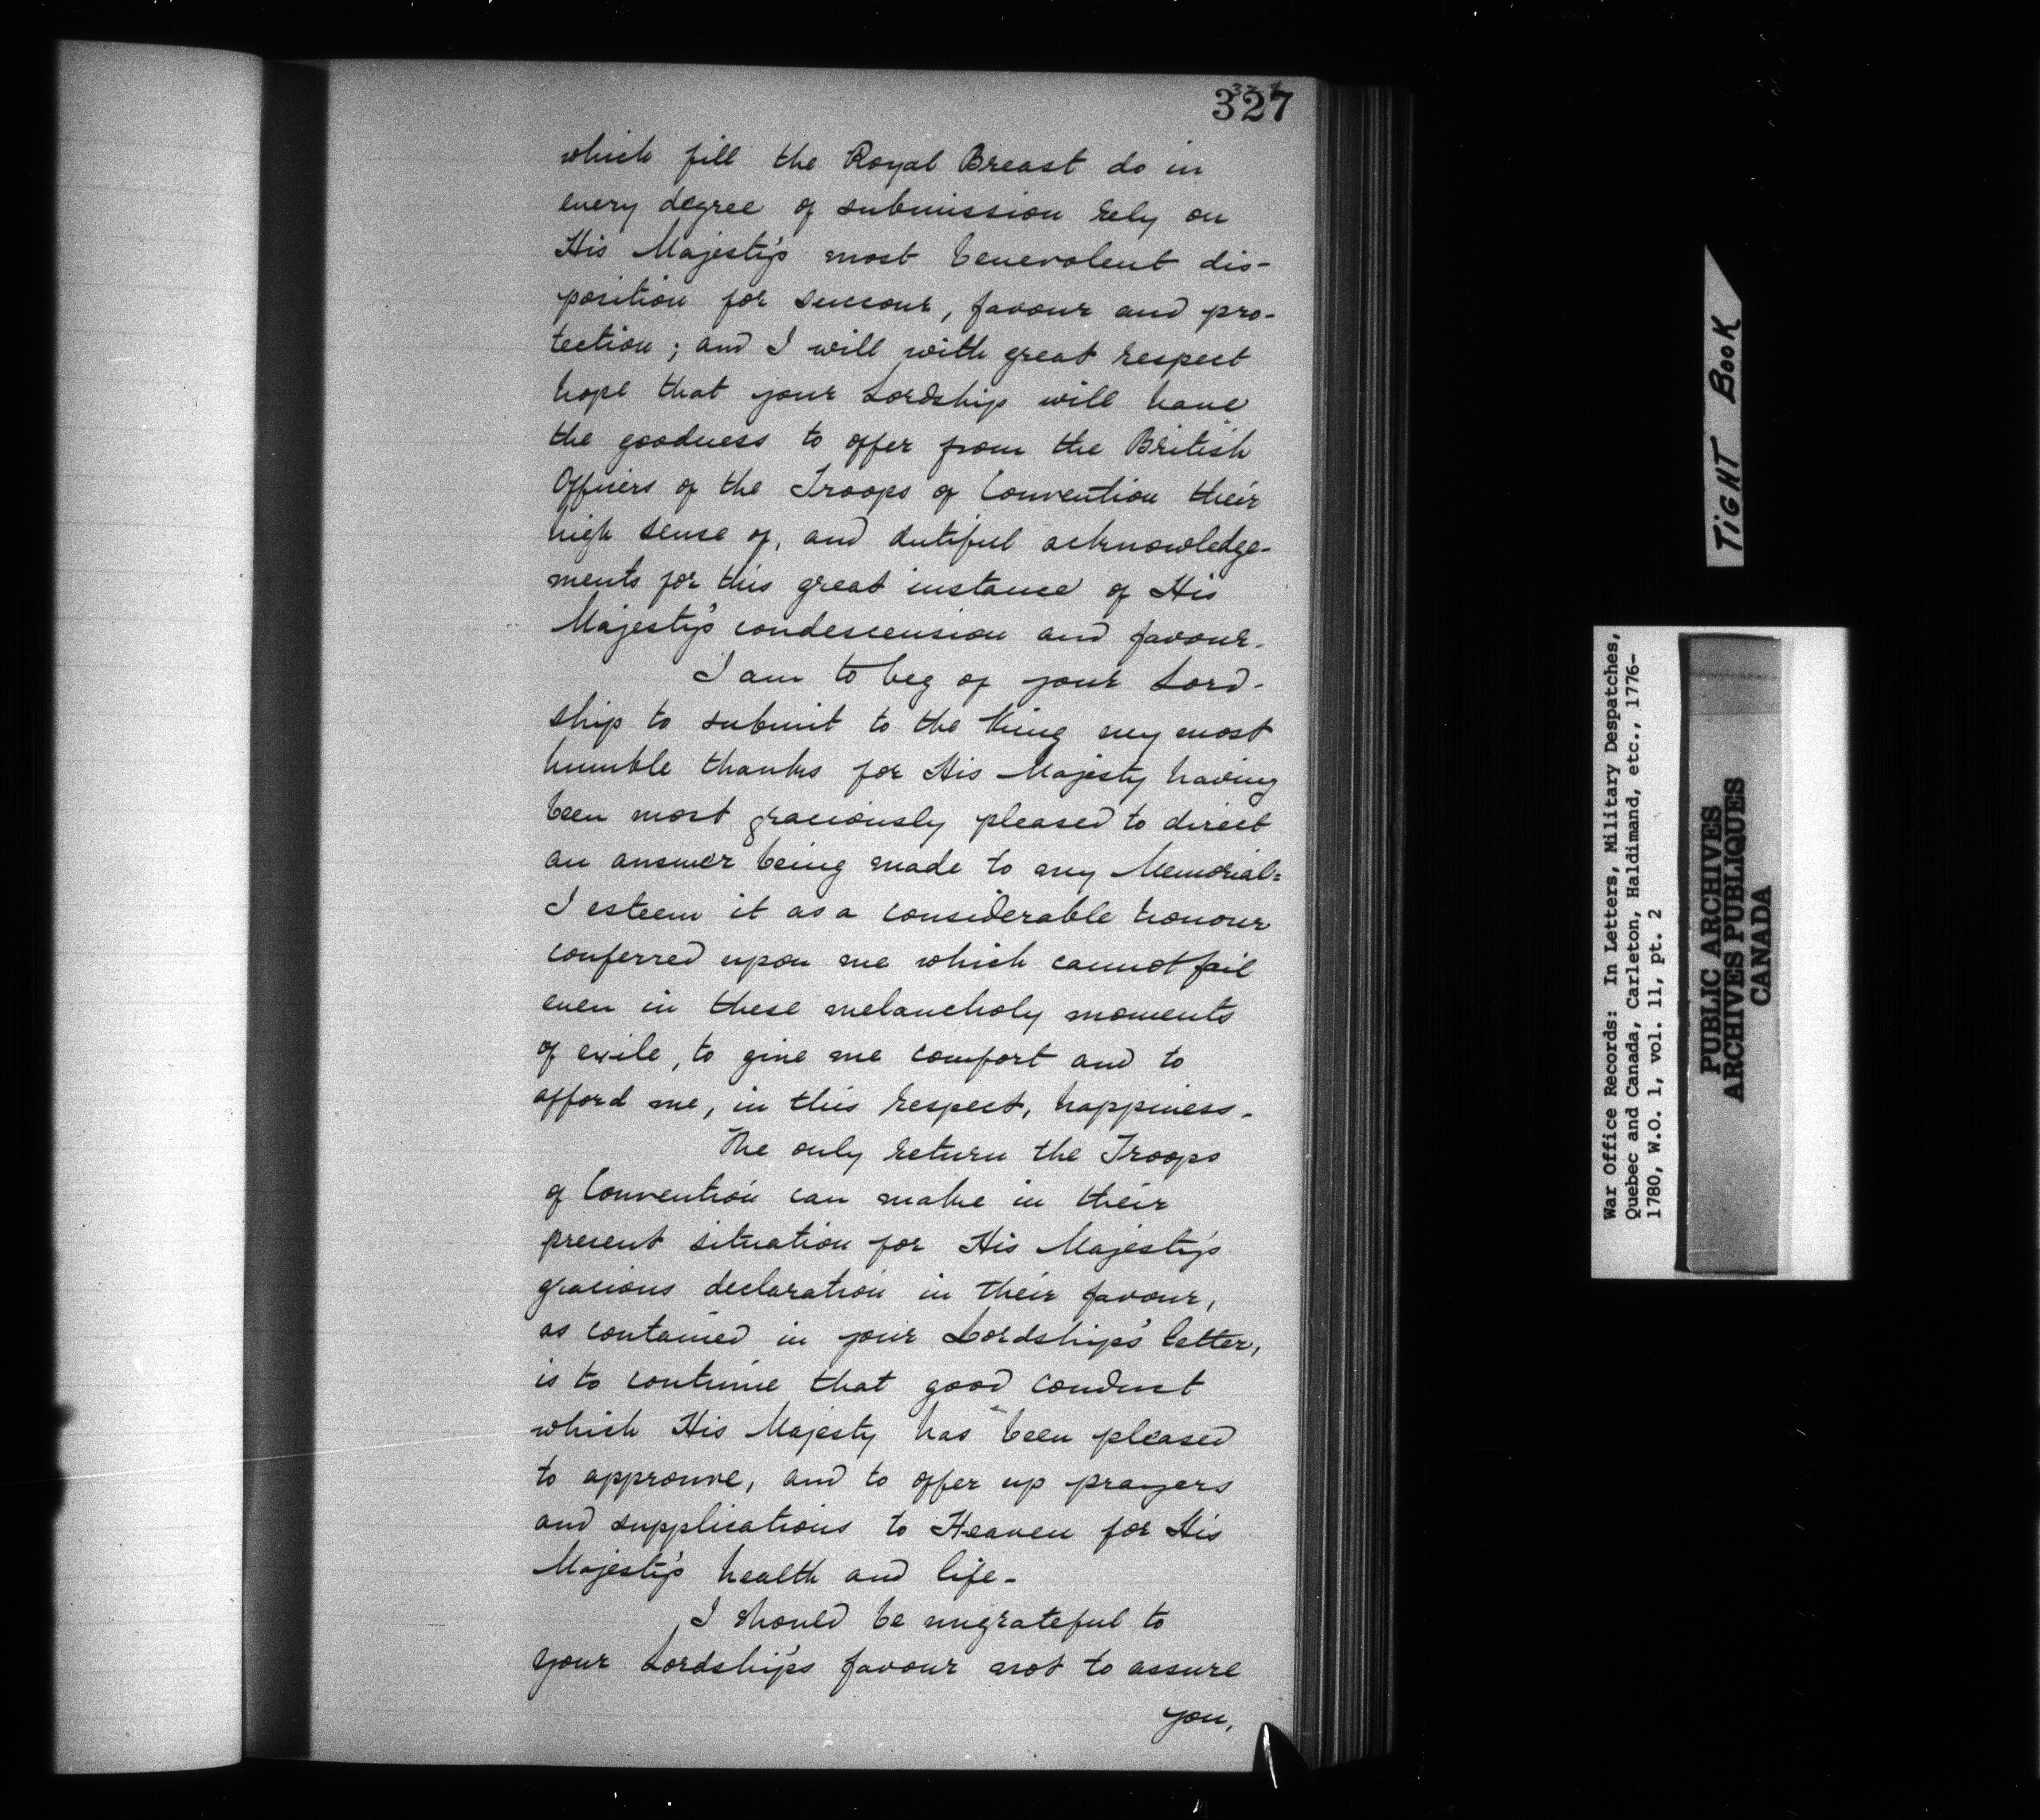 327
which fill the Royal Breast do in
every degree of submission rely on
His Majesty's most benevolent dis-
position for succour, favour and pro-
tection; and I will with great respect
hope that your Lordship will have
the goodness to offer from the British
Officers of the Troops of Convention their
high sense of, and dutiful acknowledge-
ments for this great instance of His
Majesty's condescension and favour.
I am to beg of your Lord-
ship to submit to the King my most
humble thanks for His Majesty having
been most graciously pleased to direct
an answer being made to my Memorial=
I esteem it as a considerable honour
conferred upon me which cannot fail
even in these melancholy moments
of exile, to give me comfort and to
afford me, in this respect, happiness.
The only return the Troops
of Convention can make in their
present situation for His Majesty's
gracious declaration in their favour,
as contained in your Lordship's letter,
is to continue that good conduct
which His Majesty has been pleased
to approuve, and to offer up prayers
and supplications to Heaven for His
Majesty's health and life-
I should be ungrateful to
your Lordship's favour not to assure
you,
TIGHT BOOK
War Office Records: In Letters, Military Despatches,
Quebec and Canada, Carleton, Haldimand, etc., 1776-
1780, W.O. 1, vol. 11, pt. 2
PUBLIC ARCHIVES
ARCHIVES PUBLIQUES
CANADA